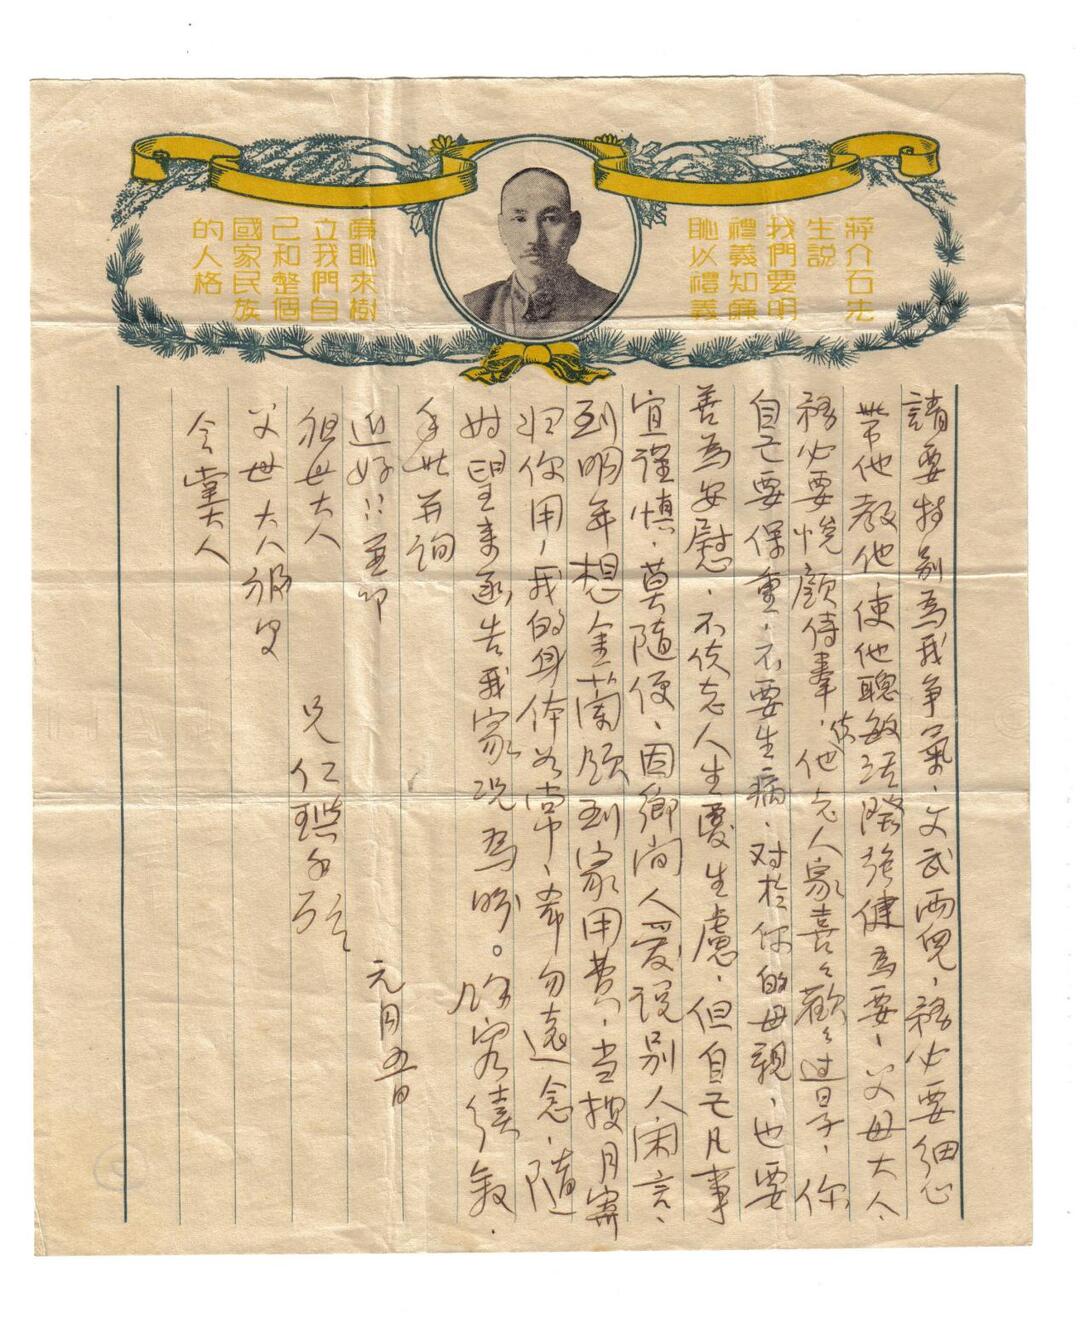 蔣介石先
生說
我們要明
禮義知廉
恥以禮義
廉恥來樹
立我們自
己和整個
國家民族
的人格
請要特別為我爭氣、文武兩兒、務必要細心
帶他教他使他聰敏活潑強健為要、父母大人、
務必要悅顏侍奉、使他老人家喜々歡々过日子、你
自己要保重、不要生病、对於你的母親、也要
善為安慰、不使老人生憂生慮、但自己凡事
宜謹慎、莫隨便、因鄉間人愛說別人闲言、
到明年想金蘭 到家用費、当按月寄
归你用、我的身体如常、希勿遠念、隨
时望来函告我家況為盼。餘容後敘、
手此并詢
近好!!並叩
祖母大人
父母大人 安
令堂大人
兄仁 手
元月五日